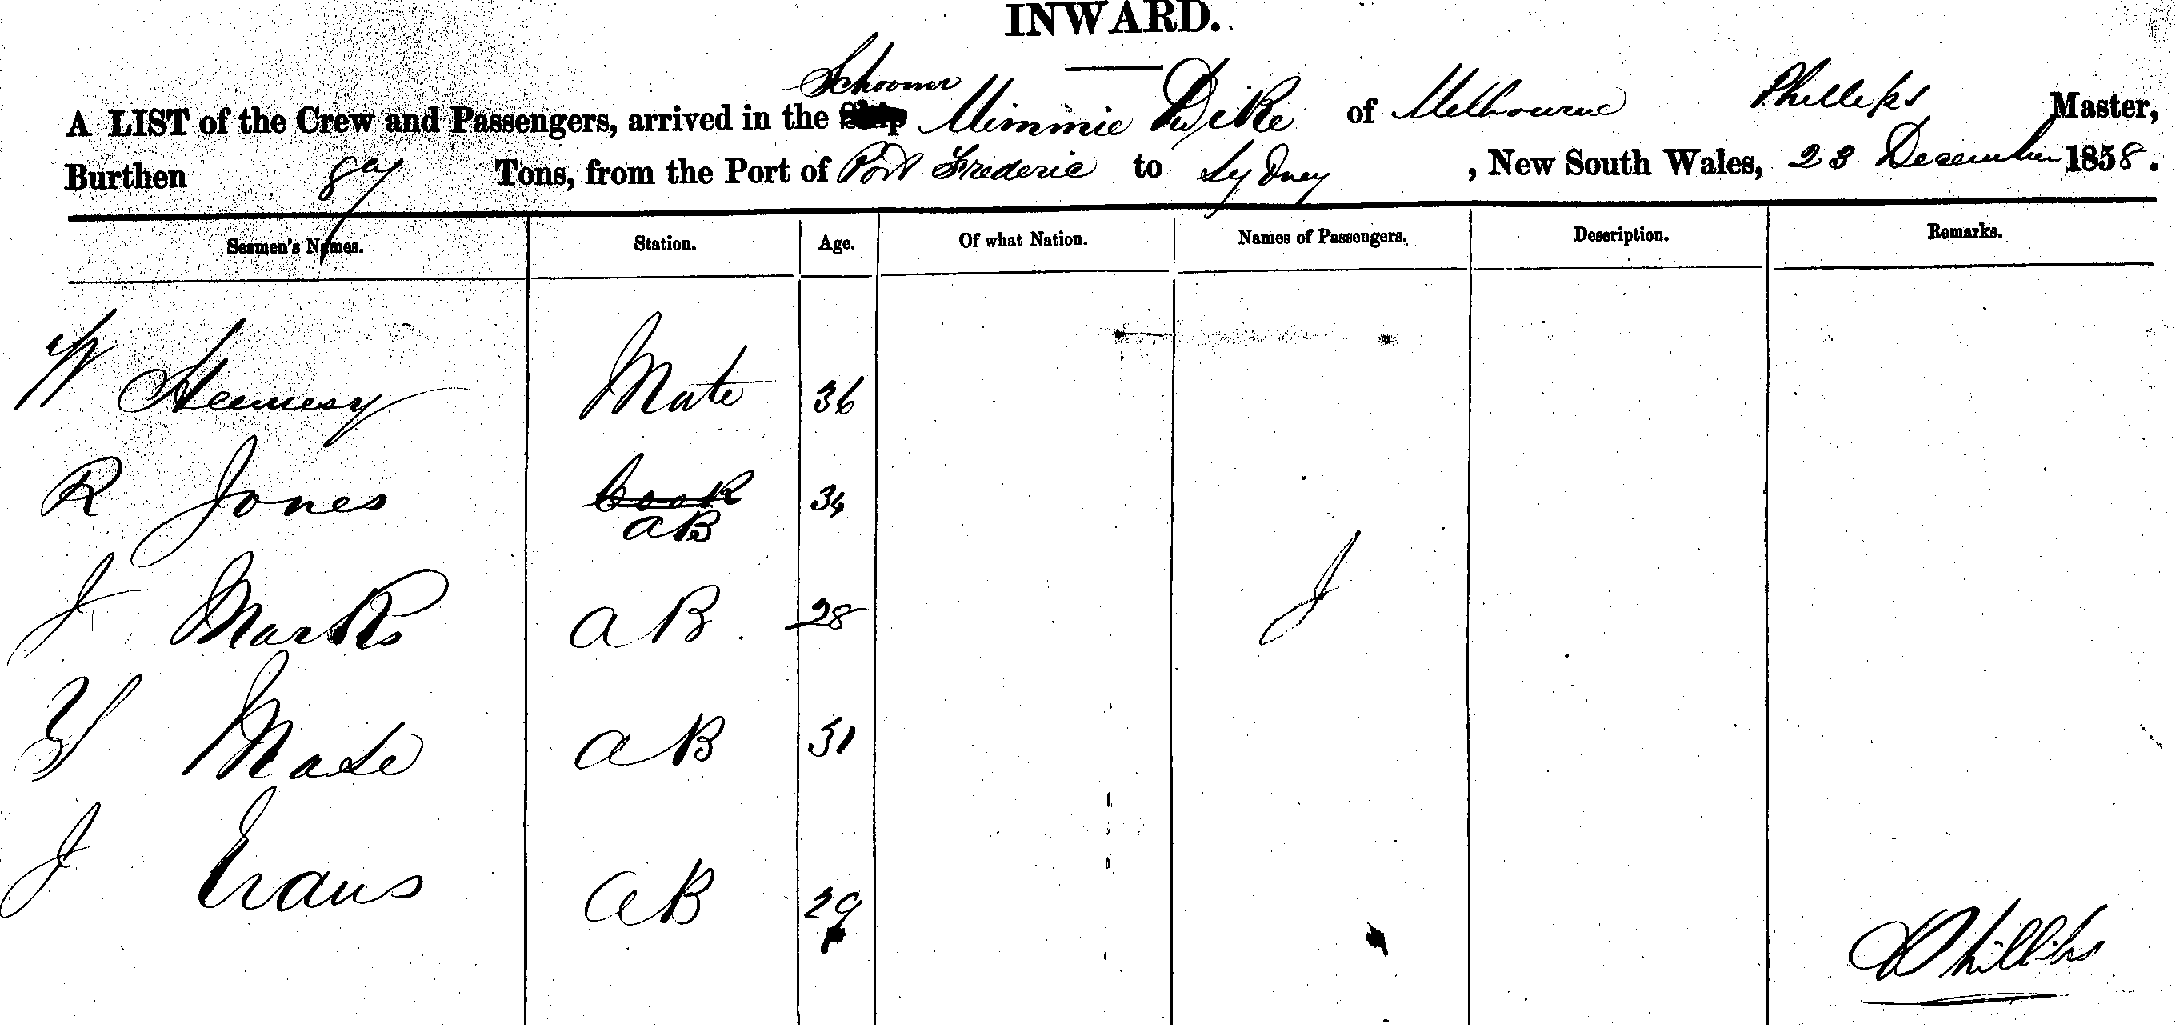 INWARD.
Schooner
A LIST of the Crew and Passengers, arrived in the Ship Mimmie Dike of Melbourne Phillips Master,
Burthen Tons, from the Port of Port Frederic to Sydney , New South Wales, 23 December 1858.
Seamen's Names. Station. Age. Of what Nation. Names of Passengers. Description. Remarks.
W Hennesy Mate 36
R Jones Cook 34
aB
J Marks aB 28
J
Made aB 31
J Evans aB 29
Phillips